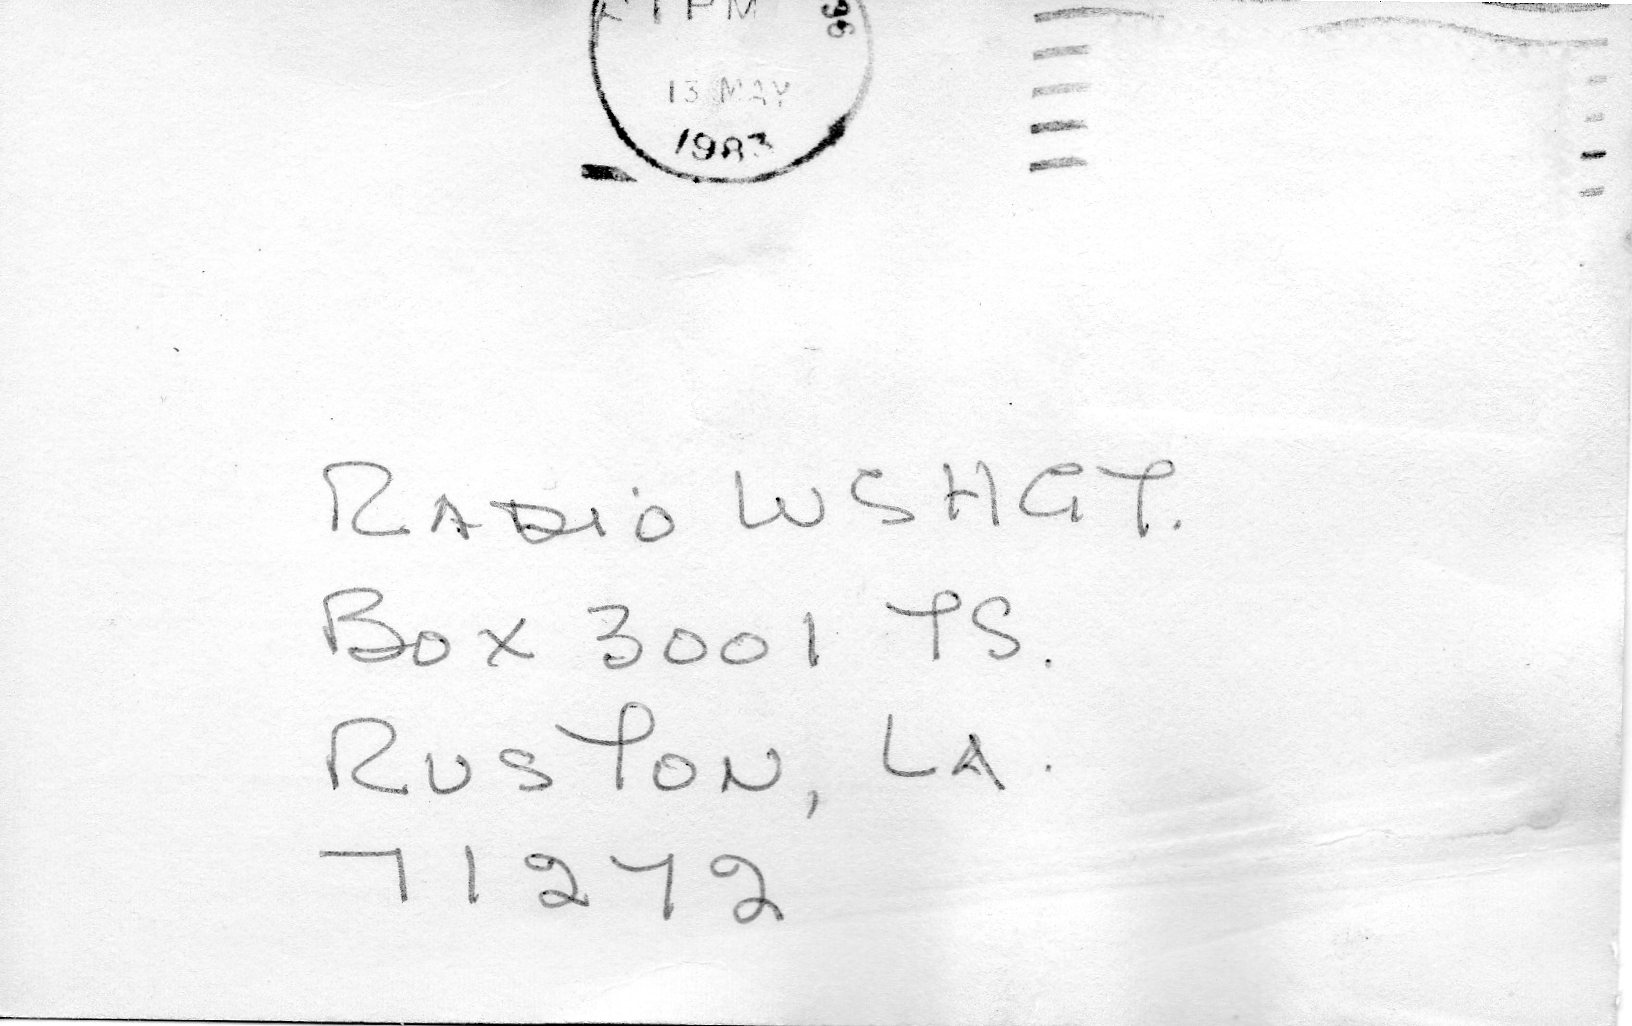 PM
13 MAY
1983
RADIO WSHGT.
BOX 3001 TS.
RUSTON, LA.
71272